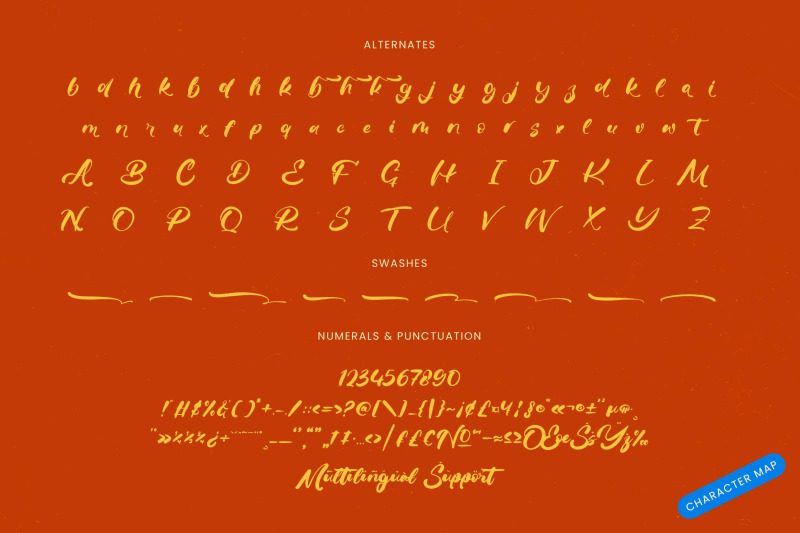 ALTERNATES
b d h k b d h k b h k g j y g j y z d k l a i
m n r u x f p q a c e i m n o r s x l u v w T
A B C D E F G H I J K L M
N O P Q R S T U V W X Y Z
SWASHES
NUMERALS & PUNCTUATION
1234567890
Multilingual Support
CHARACTER MAP